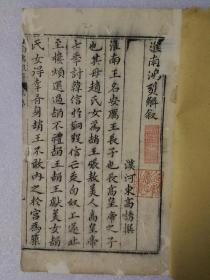 淮南鴻烈解敘
漢河東高誘撰
淮南王名安厲王長子也長高皇帝之子
也其母趙氏女為趙王張敖美人高皇帝
七年討韓信於銅鞮信亡走匈奴上遂北
至樓煩還過趙不禮趙王趙王獻美女趙
氏女得幸有身趙王不敢內之於宮為築